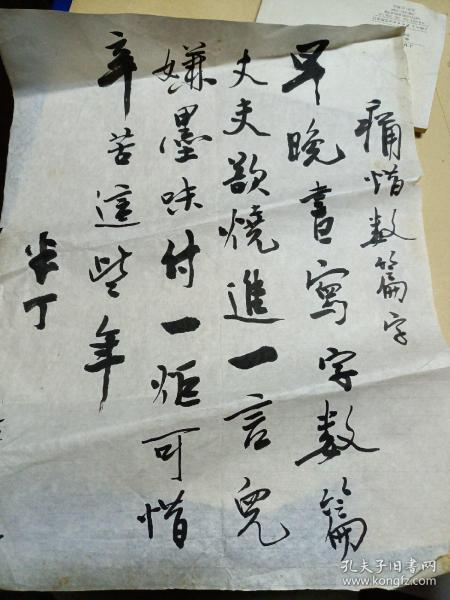 痛惜数篇字
早晚書寫字数篇
丈夫欲燒進一言兒
嫌墨味付一炬可惜
辛苦這些年
米丁
孔夫子旧书网
www.kongfz.com